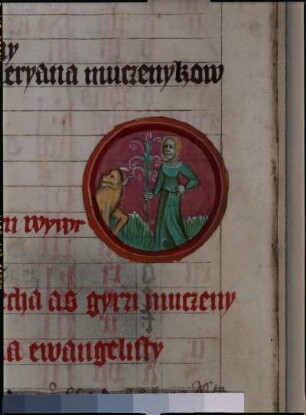 eryana muczenykow
wywr
echa as gyrzi muczeny
a ewangelisty